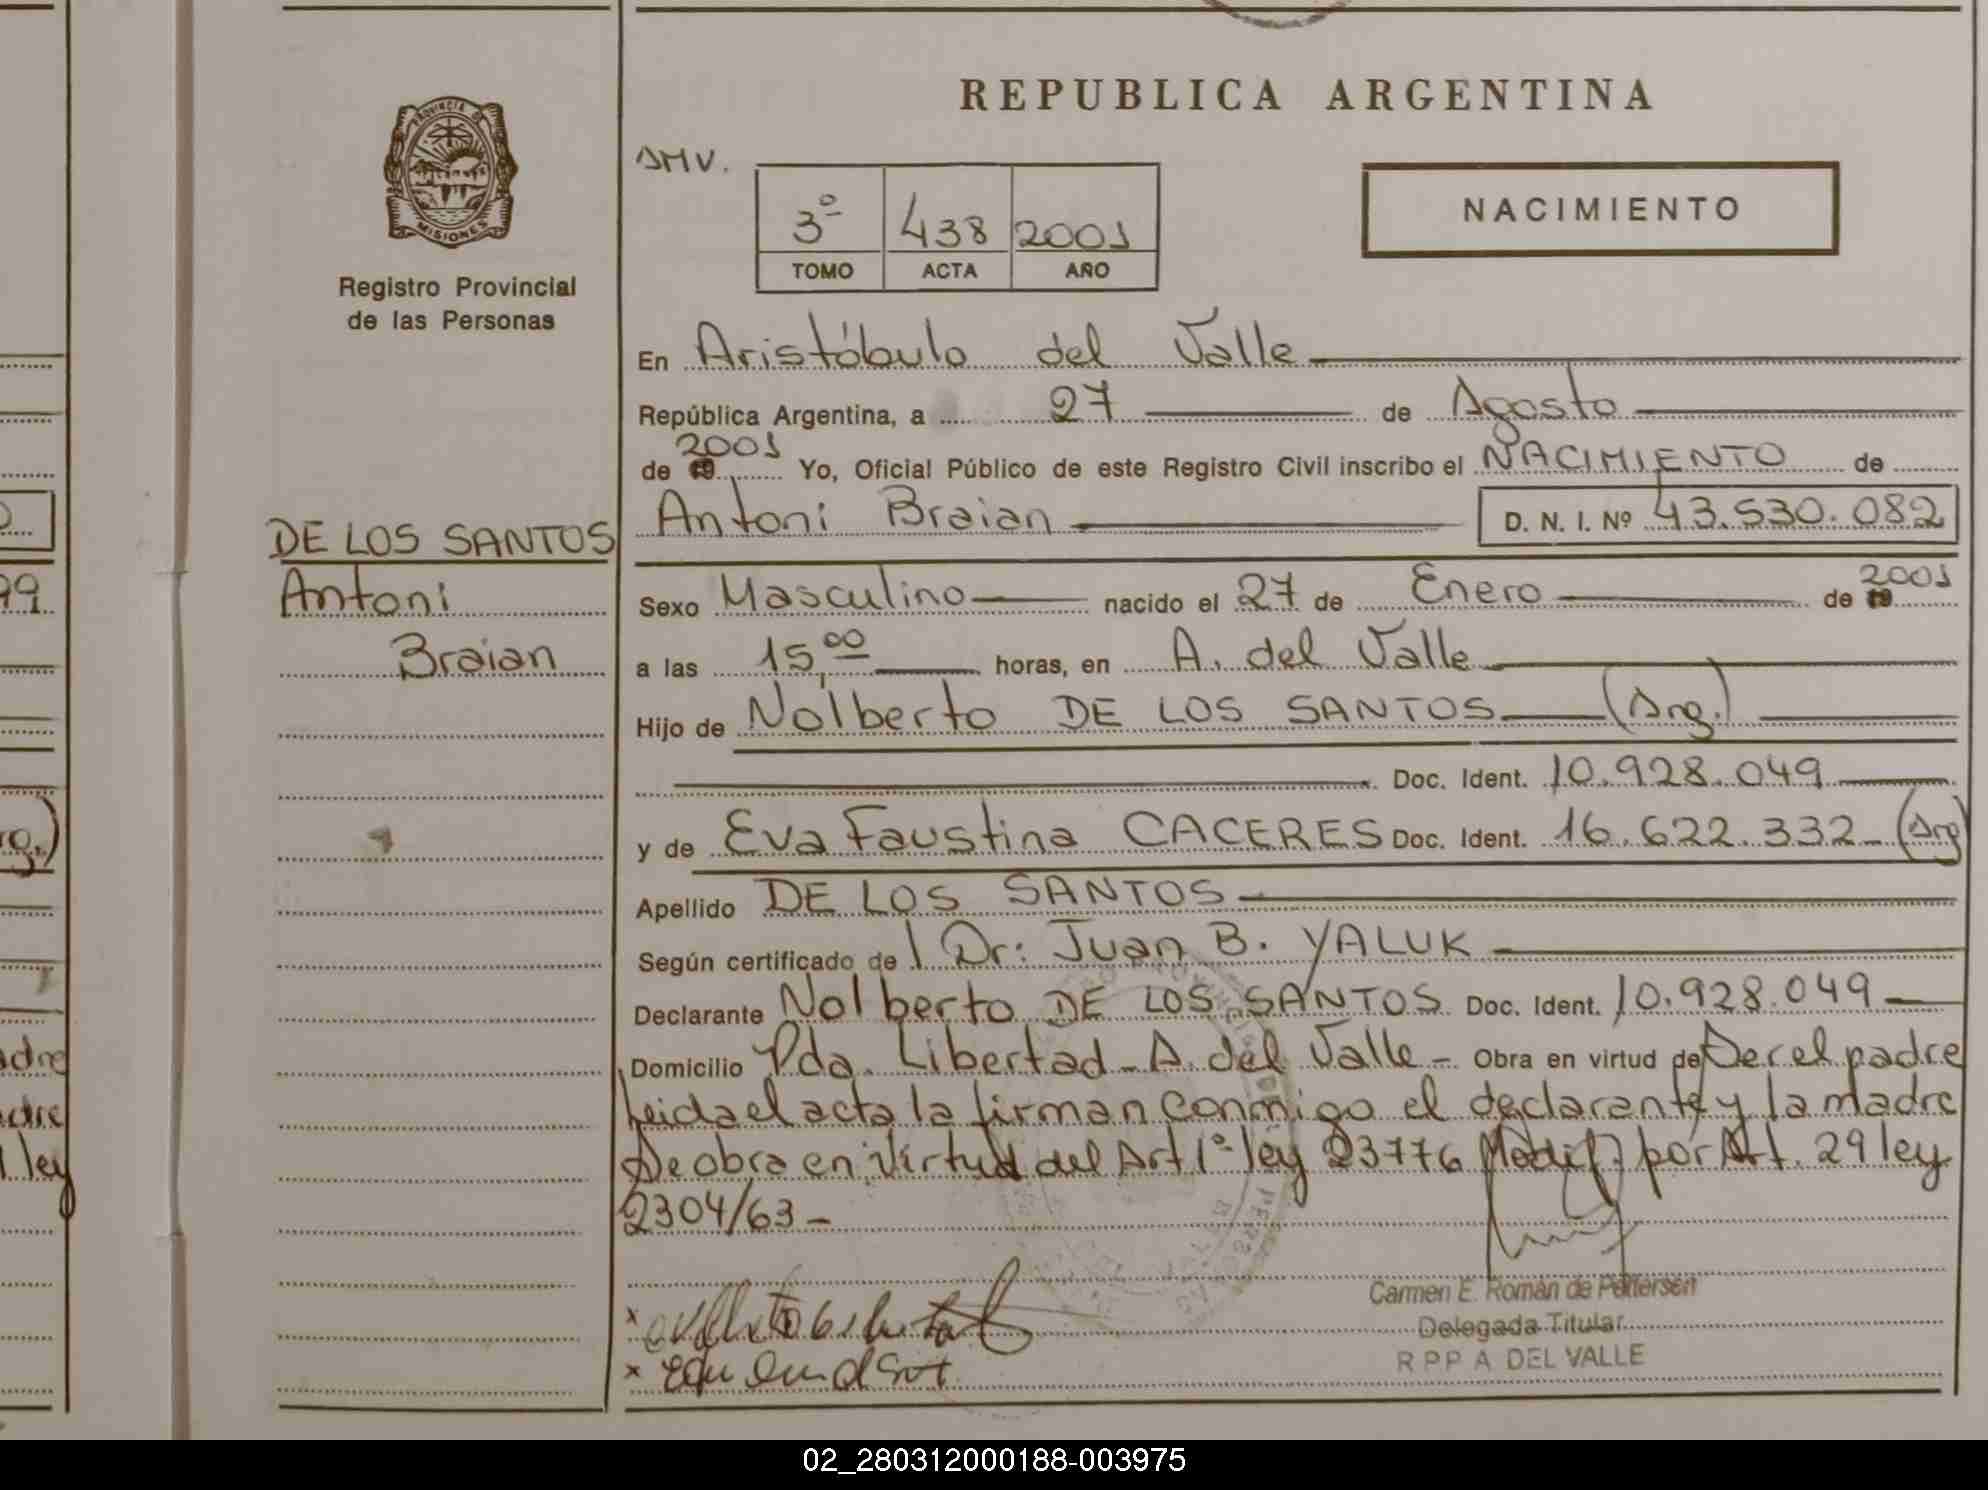 REPUBLICA ARGENTINA
PROVINCIA DE
MISIONES
Registro Provincial
de las Personas
SMV.
3º 438 2001
TOMO ACTA AÑO
NACIMIENTO
En Aristóbulo del Valle
República Argentina, a 27 de Agosto
de 2001 Yo, Oficial Público de este Registro Civil inscribo el NACIMIENTO de
Antoni Braian D. N. I. Nº 43.530.082
DE LOS SANTOS
Antoni
Braian
Sexo Masculino nacido el 27 de Enero de 2001
a las 15,00 horas, en A. del Valle
Hijo de Nolberto DE LOS SANTOS (Arg.)
Doc. Ident. 10.928.049
y de Eva Faustina CACERES Doc. Ident. 16.622.332 (Arg
Apellido DE LOS SANTOS
Según certificado de l Dr: Juan B. YALUK
Declarante Nolberto DE LOS SANTOS Doc. Ident. 10.928.049
Domicilio Pda. Libertad - A. del Valle - Obra en virtud de Ser el padre
Leida el acta la firman conmigo el declarante y la madre
Se obra en virtud del Art 1º ley 23776 Modif. por Art. 29 ley
2304/63 -
Carmen E. Román de Pettersen
Delegada Titular
R P P A DEL VALLE
99
adre
adre
ley
02_280312000188-003975